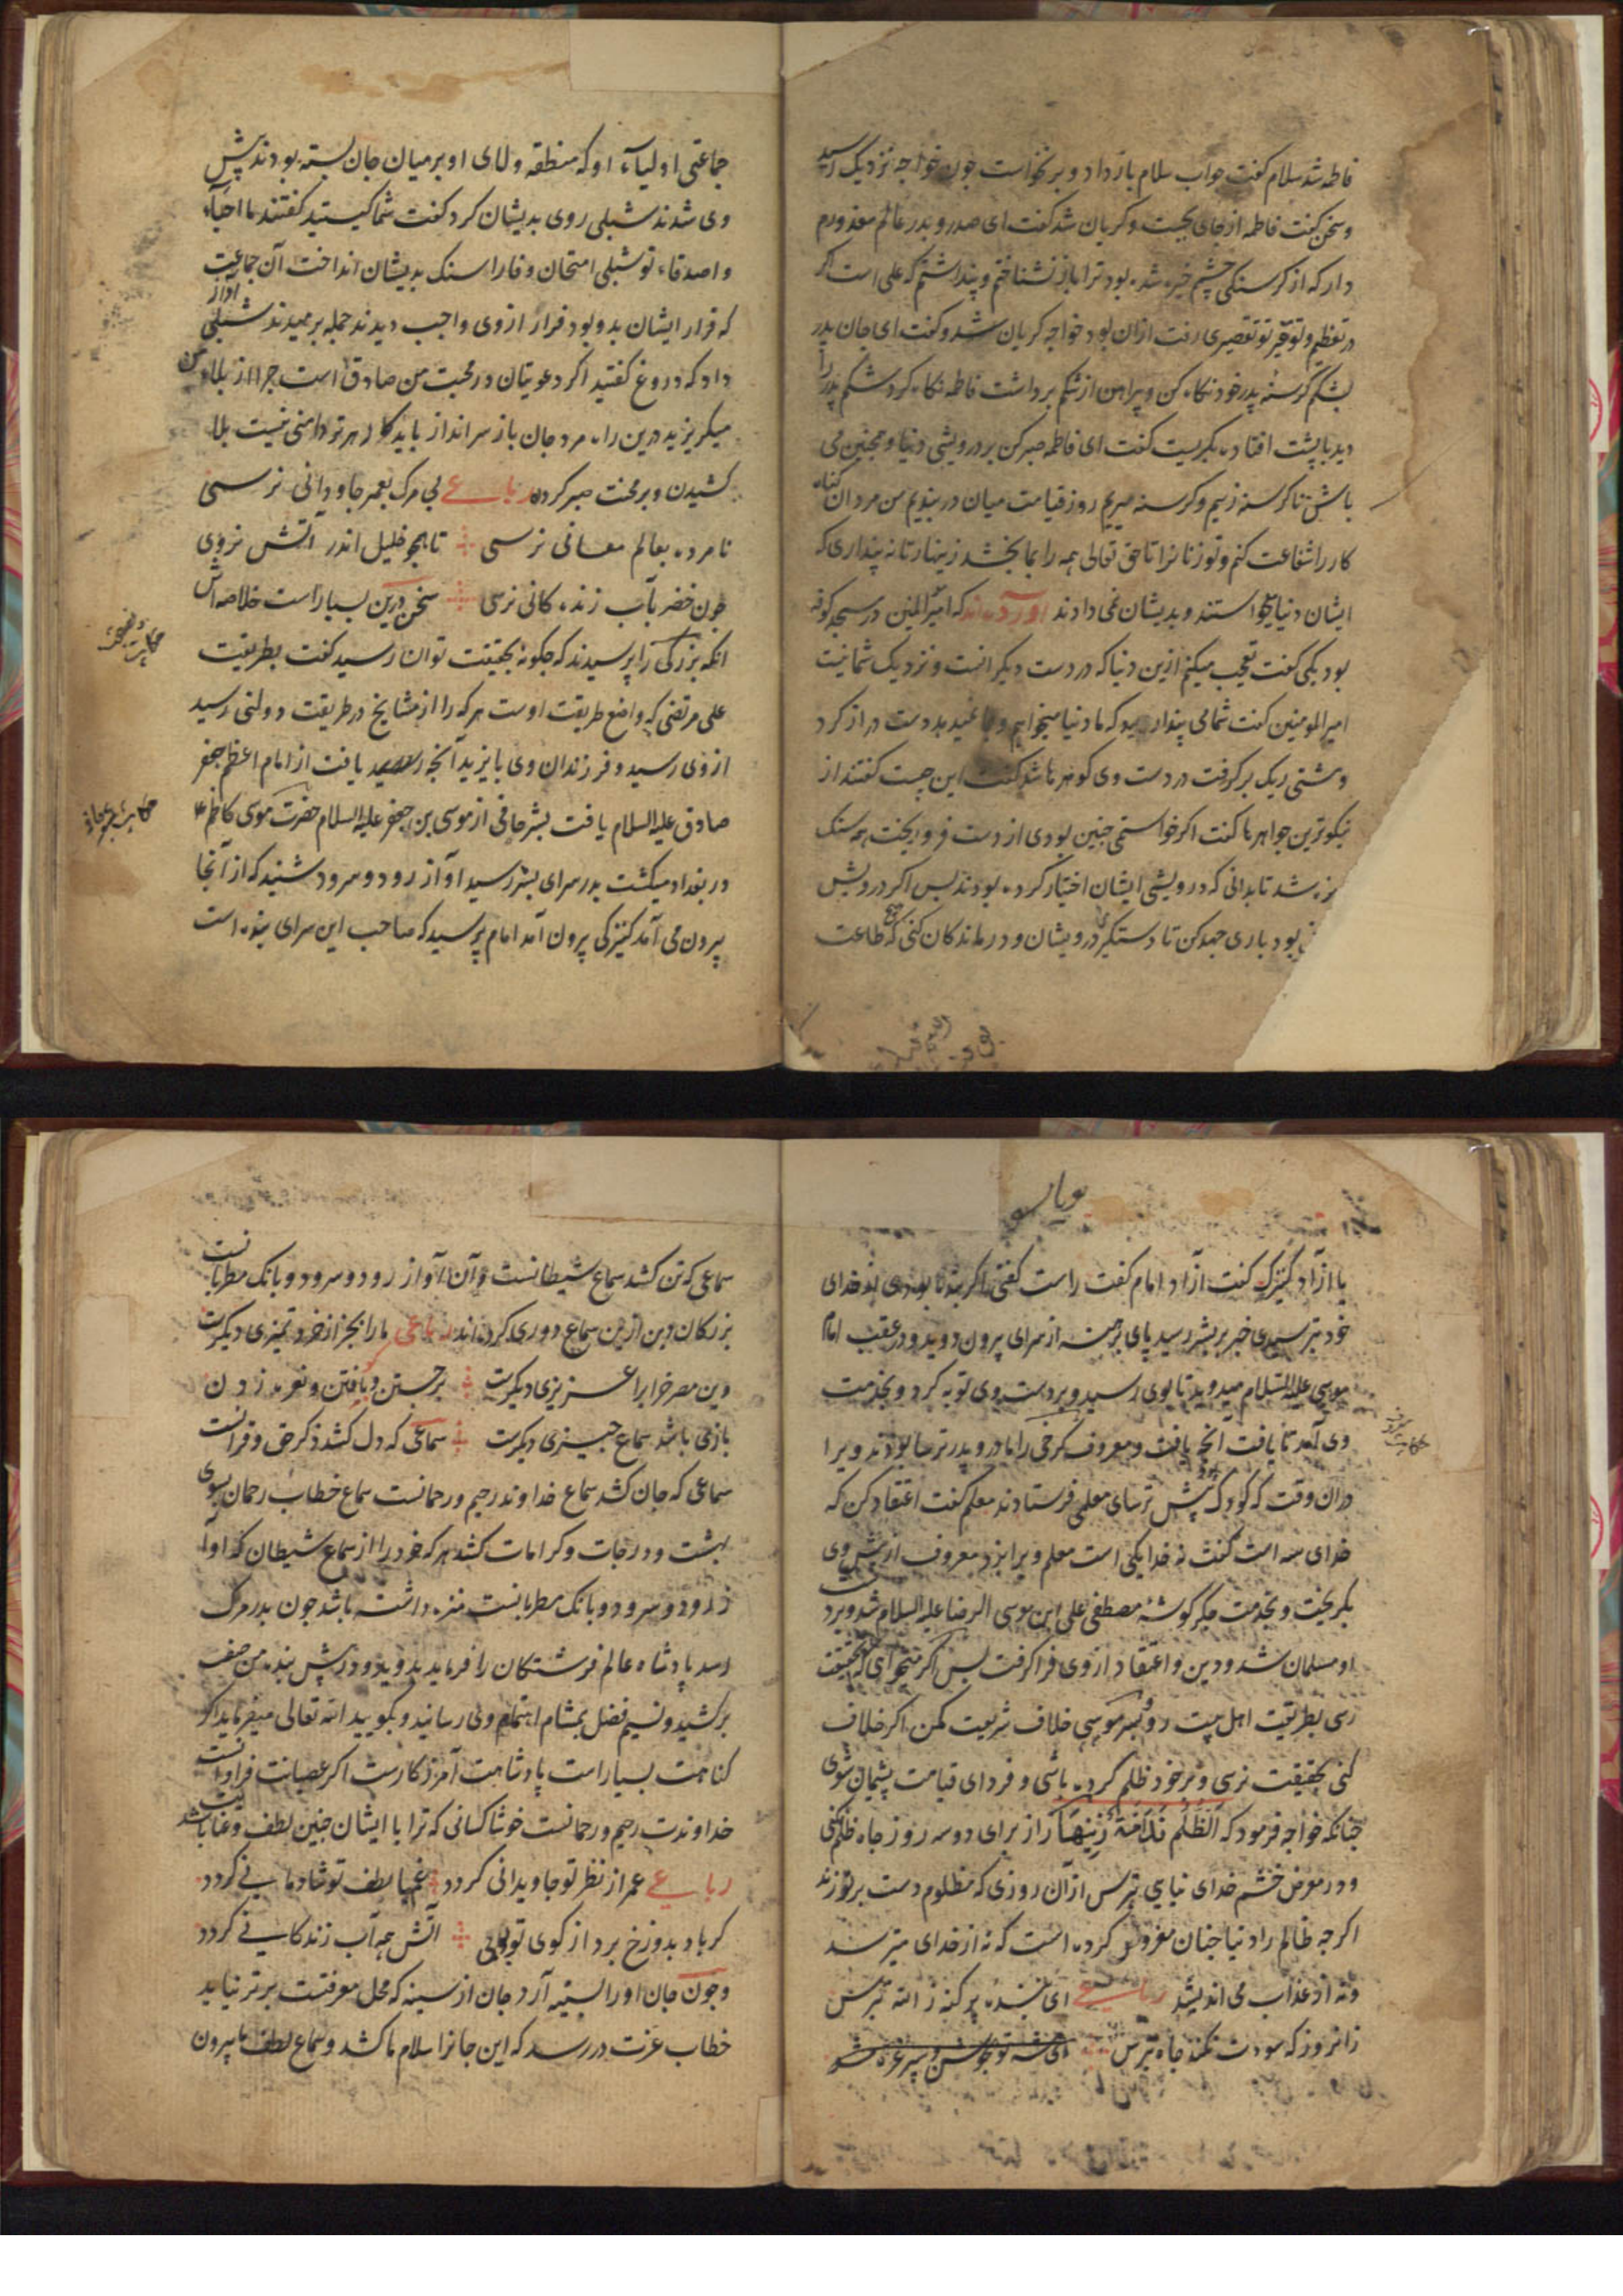 فاطمه شد سلام گفت جواب سلام باز داد و برنخواست چون خواجه نزدیک رسید
و سخن گفت فاطمه از جای بجست و گریان شد گفت ای صدر و بدر عالم معذورم
دار که از گرسنگی چشمم خیره شده بود ترا باز نشناختم و پنداشتم که علی است اگر
در تعظیم و توقیر تو تقصیری رفت ازان بود خواجه گریان شد و گفت ای جان پدر
بشکم گرسنهٔ پدر خود نگاه کن و پیراهن از شکم برداشت فاطمه نگاه کرد شکم پدر را
دید با پشت افتاده بگریست گفت ای فاطمه صبر کن بر درویشی دنیا و همچنین می
باش تا گرسنه زییم و گرسنه میریم روز قیامت میان دربندیم من مردان گناه
کار را شفاعت کنم و تو زنانرا تا حق تعالی همه را بما بخشد زینهار تا نه پنداری که
ایشان دنیا میخواستند و بدیشان نمی دادند آورده اند که امیرالمؤمنین در مسجد کوفه
بود یکی گفت تعجب میکنم ازین دنیا که در دست دیگرانست و نزدیک شما نیست
امیر المومنین گفت شما می پندارید که ما دنیا میخواهیم و بما نمیدهد دست دراز کرد
و مشتی ریگ برگرفت در دست وی گوهرها شد گفت این چیست گفتند از
نیکوترین جواهرها گفت اگر خواستمی چنین بودی از دست فرو ریخت همه سنگ
ریزه شد تا بدانی که درویشی ایشان اختیار کرده بودند پس اگر درویش
بود باری جهد کن تا دستگیری درویشان و درماندکان کنی که هیچ طاعت
جماعتی اولیاء او که منطقه ولای او بر میان جان بسته بودند پیش
وی شدند شبلی روی بدیشان کرد گفت شما کیستید گفتند ما احباء
و اصدقاء تو شبلی امتحان وفا را سنگ بدیشان انداخت آن جماعت
که قرار ایشان بدو بود فرار از وی واجب دیدند جمله برمیدند شبلی آواز
داد که دروغ گفتید اگر دعویتان در محبت من صادق است چرا از بلاء من
میگریزید درین راه مرد جان باز سرانداز باید کار هر تردامنی نیست بلا
کشیدن و بر محنت صبر کردن رباعی بی مرگ بعمر جاودانی نرسی
نامرده بعالم معانی نرسی تا همچو خلیل اندر آتش نروی
چون خضر بآب زندگانی نرسی سخن درین بسیار است خلاصه اش
آنکه بزرگی را پرسیدند که چگونه بحقیقت توان رسید گفت بطریقت
علی مرتضی که واضع طریقت اوست هر که را از مشایخ در طریقت دولتی رسید
از وی رسید و فرزندان وی بایزید آنچه یافت از امام اعظم جعفر
صادق علیه السلام یافت بشر حافی از موسی بن جعفر علیه السلام حضرت موسی کاظم
در بغداد میگشت بدر سرای بشر رسید آواز رود و سرود شنید که از آنجا
بیرون می آمد کنیزکی بیرون آمد امام پرسید که صاحب این سرای بنده است
یا آزاد کنیزک گفت آزاد امام گفت راست گفتی اگر بنده بودی از خدای
خود بترسیدی خبر بشر رسید پای برهنه از سرای بیرون دوید و در عقب امام
موسی علیه السلام میدوید تا بوی رسید و بر دست وی توبه کرد و بخدمت
وی آمد تا یافت آنچه یافت و معروف کرخی را مادر و پدر ترسا بودند ویرا
دران وقت که کودک بود پیش ترسای معلمی فرستادند معلم گفت اعتقاد کن که
خدای سه است گفت نه خدا یکی است معلم ویرا بزد معروف از پیش وی
بگریخت و بخدمت جگر گوشهٔ مصطفی علی ابن موسی الرضا علیه السلام شد و بر دست
او مسلمان شد و دین و اعتقاد از وی فرا گرفت پس اگر میخواهی که بحقیقت
رسی بطریقت اهل بیت رو خلاف شریعت مکن اگر خلاف
کنی بحقیقت نرسی و بر خود ظلم کرده باشی و فردای قیامت پشیمان شوی
چنانکه خواجه فرمود که الظلم ندامة زنهار از برای دو سه روز جاه ظلم نکنی
و در معرض خشم خدای نیایی بترس از آن روزی که مظلوم دست بر تو زند
اگر چه ظالم را دنیا چنان مغرور کرده است که نه از خدای میترسد
و نه از عذاب می اندیشد رباعی ای بنده پر گنه ز الله بترس
زانروز که سودت نکند جاه بترس
سماعی که تن کشد سماع شیطانست و آن آواز رود و سرود و بانک مطربانست
بزرگان دین ازین سماع دوری کرده اند رباعی ما را بجز از خرد تمیزی دیگرست
وین مصر خراب را عزیزی دیگرست برجستن و بافتن و نعره زدن
بازی باشد سماع چیزی دیگرست سماعی که دل کشد ذکر حق و قرآنست
سماعی که جان کشد سماع خداوند رحیم و رحمانست سماع خطاب رحمان بسوی
بهشت و درجات و کرامات کشد هر که خود را از سماع شیطان که آواز
رود و سرود و بانک مطربانست منزه داشته باشد چون بدر مرگ
رسد پادشاه عالم فرشتگان را فرماید بدوید و در پیش بنده من صف
برکشید و نسیم فضل بمشام وی رسانید و بگویید الله تعالی میفرماید اگر
گناهت بسیار است پادشاهت آمرزگارست اگر عصیانت فراوانست
خداوندت رحیم و رحمانست خوشا کسانی که ترا با ایشان چنین لطف و عنایت باشد
رباعی عمر از نظر تو جاودانی گردد غمها بلطف تو شادمانی گردد
گر باد بدوزخ برد از کوی تو بویی آتش همه آب زندگانی گردد
و چون جان او را آرد جان از سینه که محل معرفتست برتر نیاید
خطاب عزت در رسد که این جانرا سلام ما کشد و سماع لطف ما بیرون